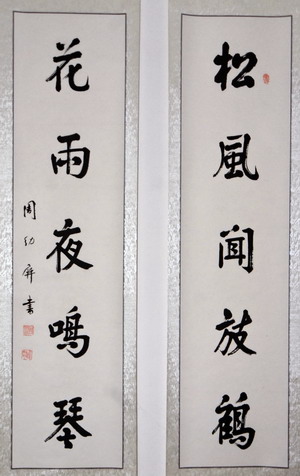 松風聞放鶴
花雨夜鳴琴
周幼書